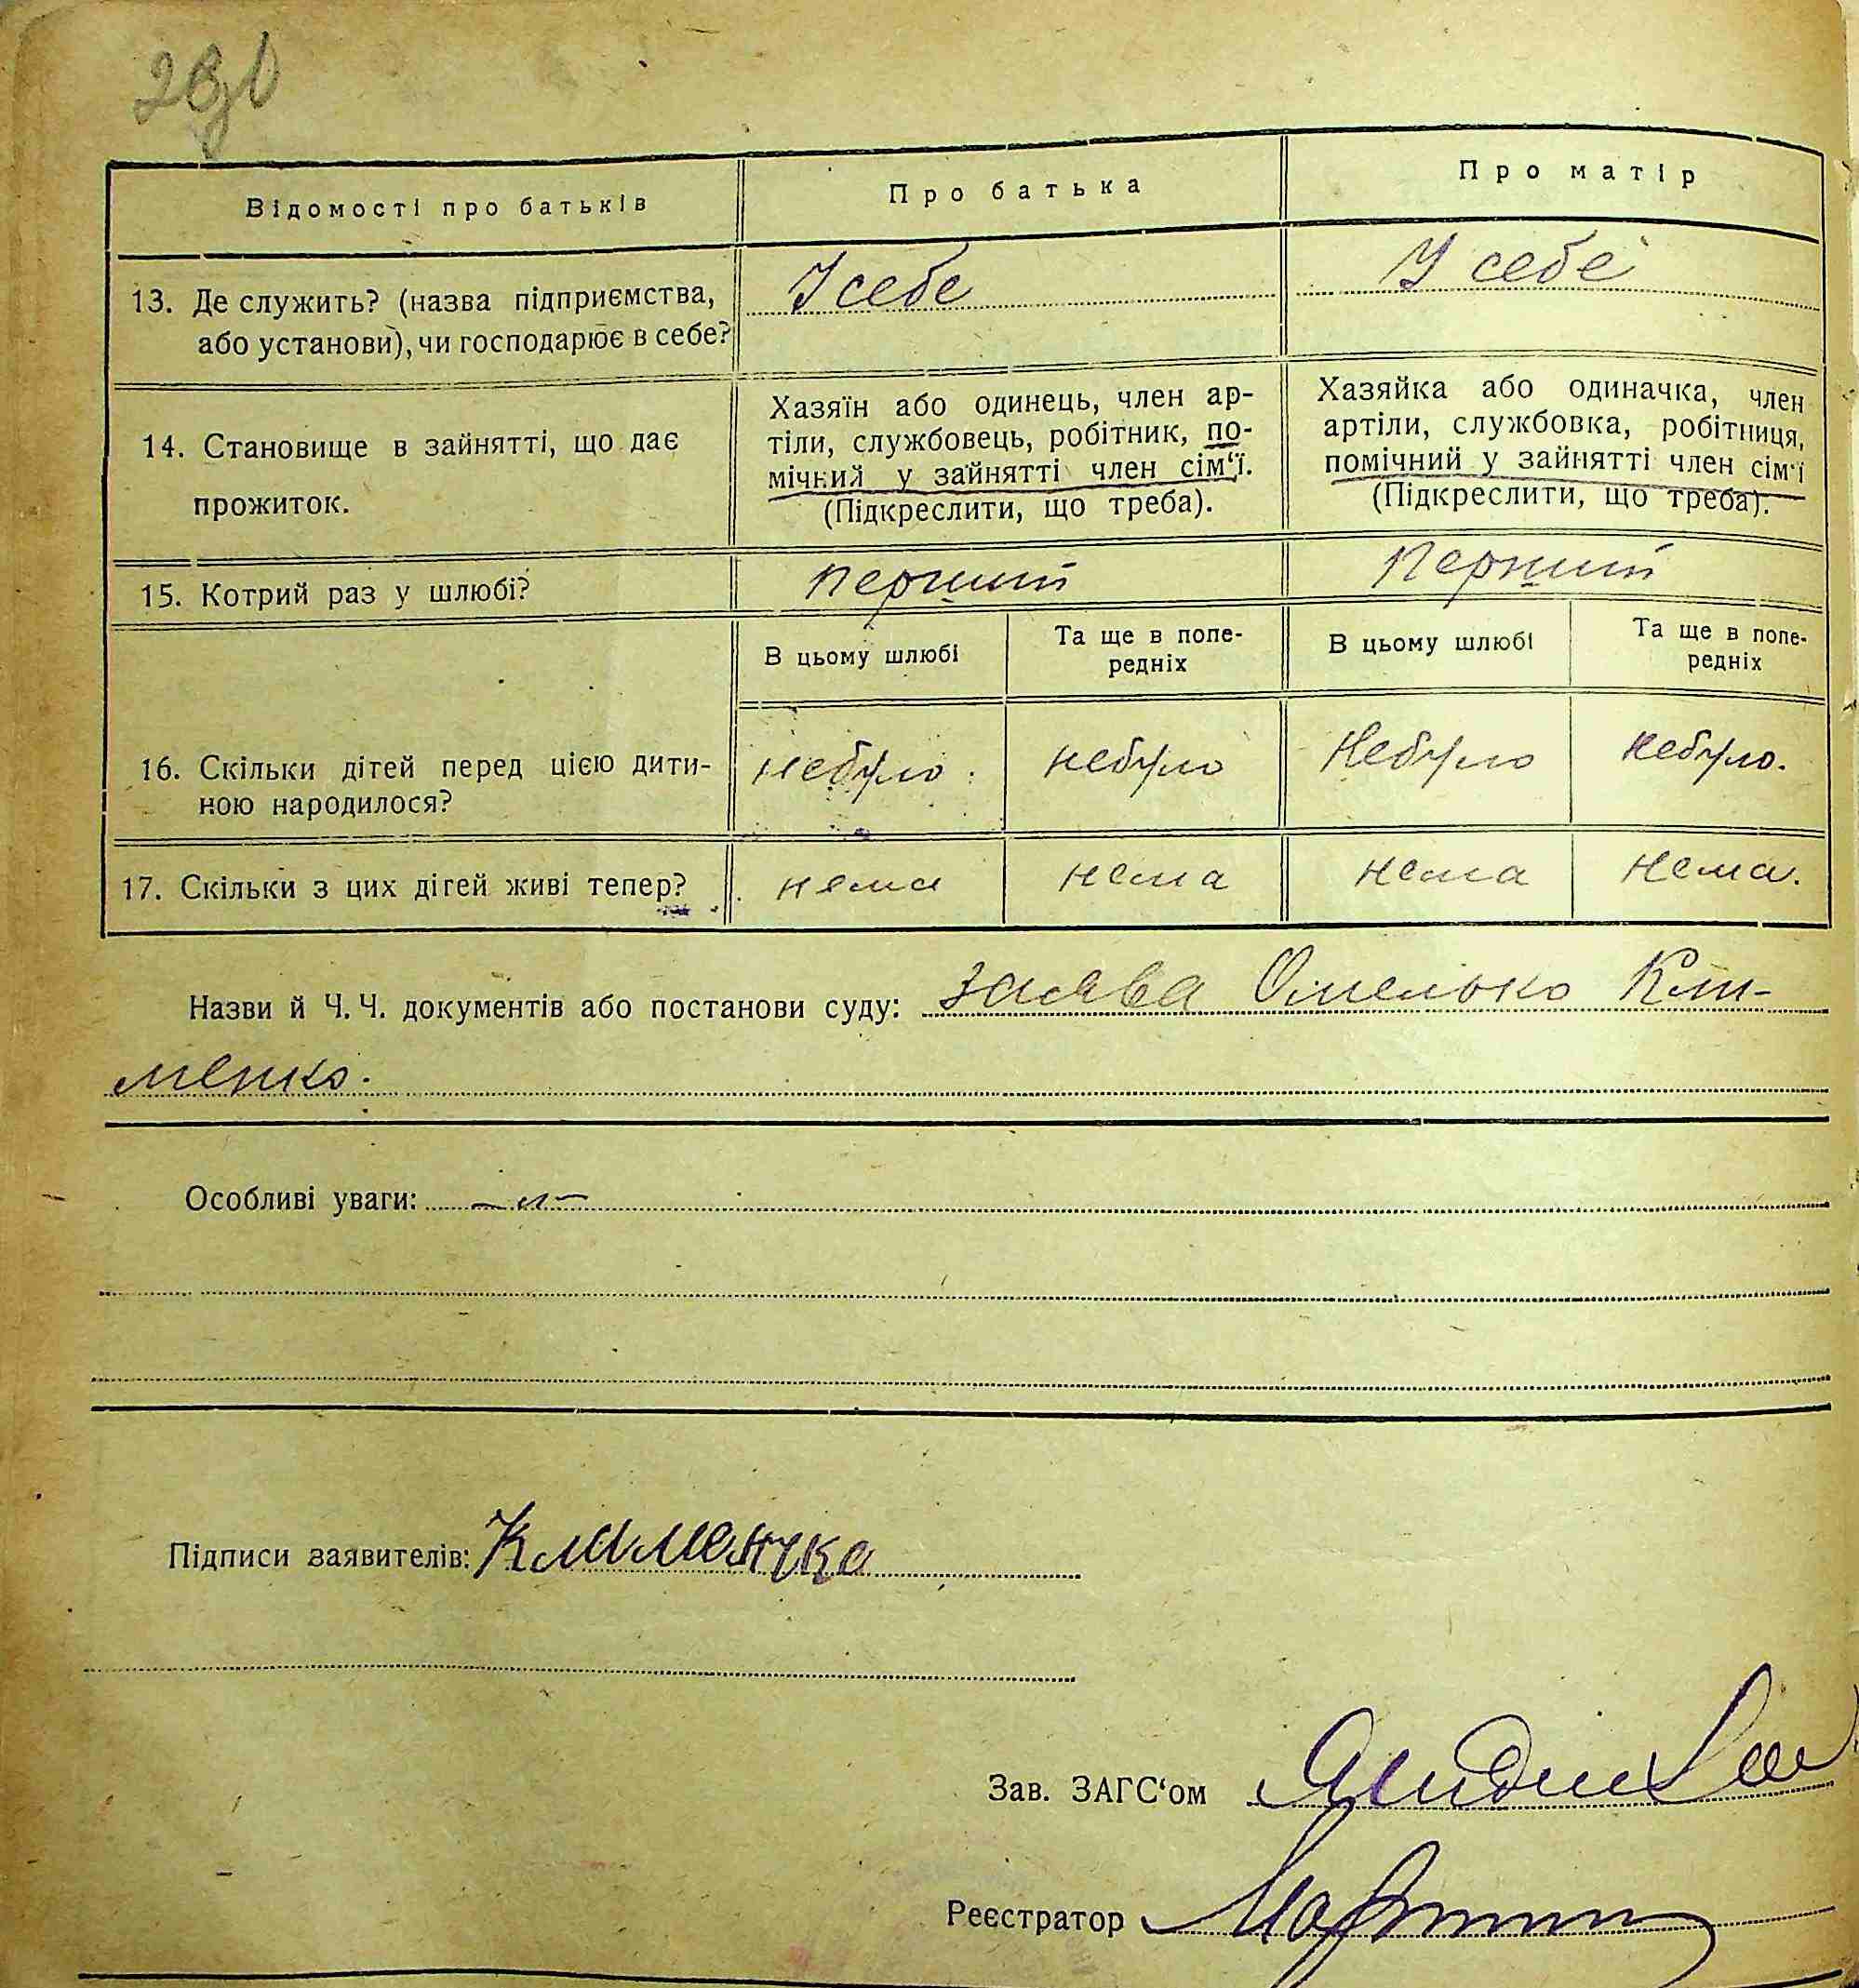 Відомості про батьків
Про батька
Про матір
13. Де служить? (назва підприємства,
або установи), чи господарює в себе?
У себе
У себе
14. Становище в зайнятті, що дає
прожиток.
Хазяїн або одинець, член ар-
тіли, службовець, робітник, по-
мічний у зайнятті член сім‘ї.
(Підкреслити, що треба).
Хазяйка або одиначка, член
артіли, службовка, робітниця,
помічний у зайнятті член сім‘ї
(Підкреслити, що треба).
15. Котрий раз у шлюбі?
перший
Перший
В цьому шлюбі
Та ще в попе-
редніх
В цьому шлюбі
Та ще в попе-
редніх
16. Скільки дітей перед цією дити-
ною народилося?
небуло
небуло
Небуло
небуло.
17. Скільки з цих дітей живі тепер?
нема
нема
нема
нема.
Назви й Ч. Ч. документів або постанови суду: заява Омелько Кли-
менко.
Особливі уваги:
Підписи заявителів: Клименко
Зав. ЗАГС‘ом
Реєстратор